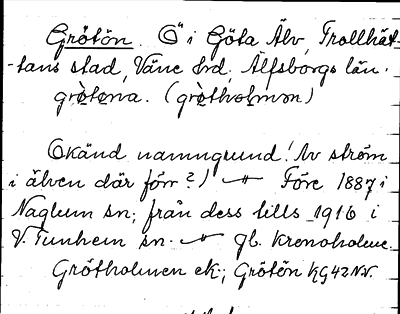 Grötön. Ö i Göta Älv, Trollhät-
-tans stad, Väne hrd, Älfsborgs län.
grò̤tøna. (grò̤thølmøn)
Okänd namngrund! Av ström
i älven där förr?) Före 1887 i
Naglum sn; från dess tills 1916 i
V. Tunhem sn. gl. kronoholme.
Grötholmen ek.; Grötön KG42NV.